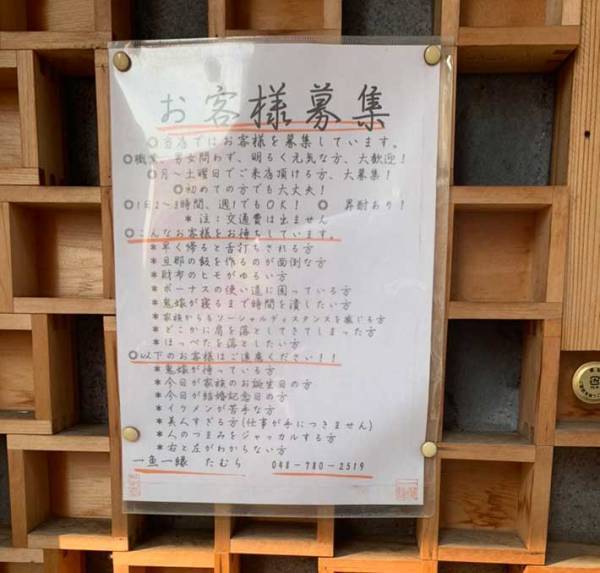 お客様募集
◎当店ではお客様を募集しています。
◎職業、男女問わず、明るく元気な方、大歓迎！
◎月～土曜日でご来店頂ける方、大募集！
◎初めての方でも大丈夫！
◎1日2～3時間、週1でもOK！ ◎ 昇酎あり！
＊注：交通費は出ません
◎こんなお客様をお待ちしています。
＊早く帰ると舌打ちされる方
＊旦那の飯を作るのが面倒な方
＊財布のヒモがゆるい方
＊ボーナスの使い道に困っている方
＊鬼嫁が寝るまで時間を潰したい方
＊家族からもソーシャルディスタンスを感じる方
＊どこかに肩を落としてきてしまった方
＊ほっぺたを落としたい方
◎以下のお客様はご遠慮ください！！
＊鬼嫁が待っている方
＊今日が家族のお誕生日の方
＊今日が結婚記念日の方
＊イケメンが苦手な方
＊美人すぎる方(仕事が手につきません)
＊人のつまみをジャッカルする方
＊右と左がわからない方
一魚一縁 たむら 048-780-2519